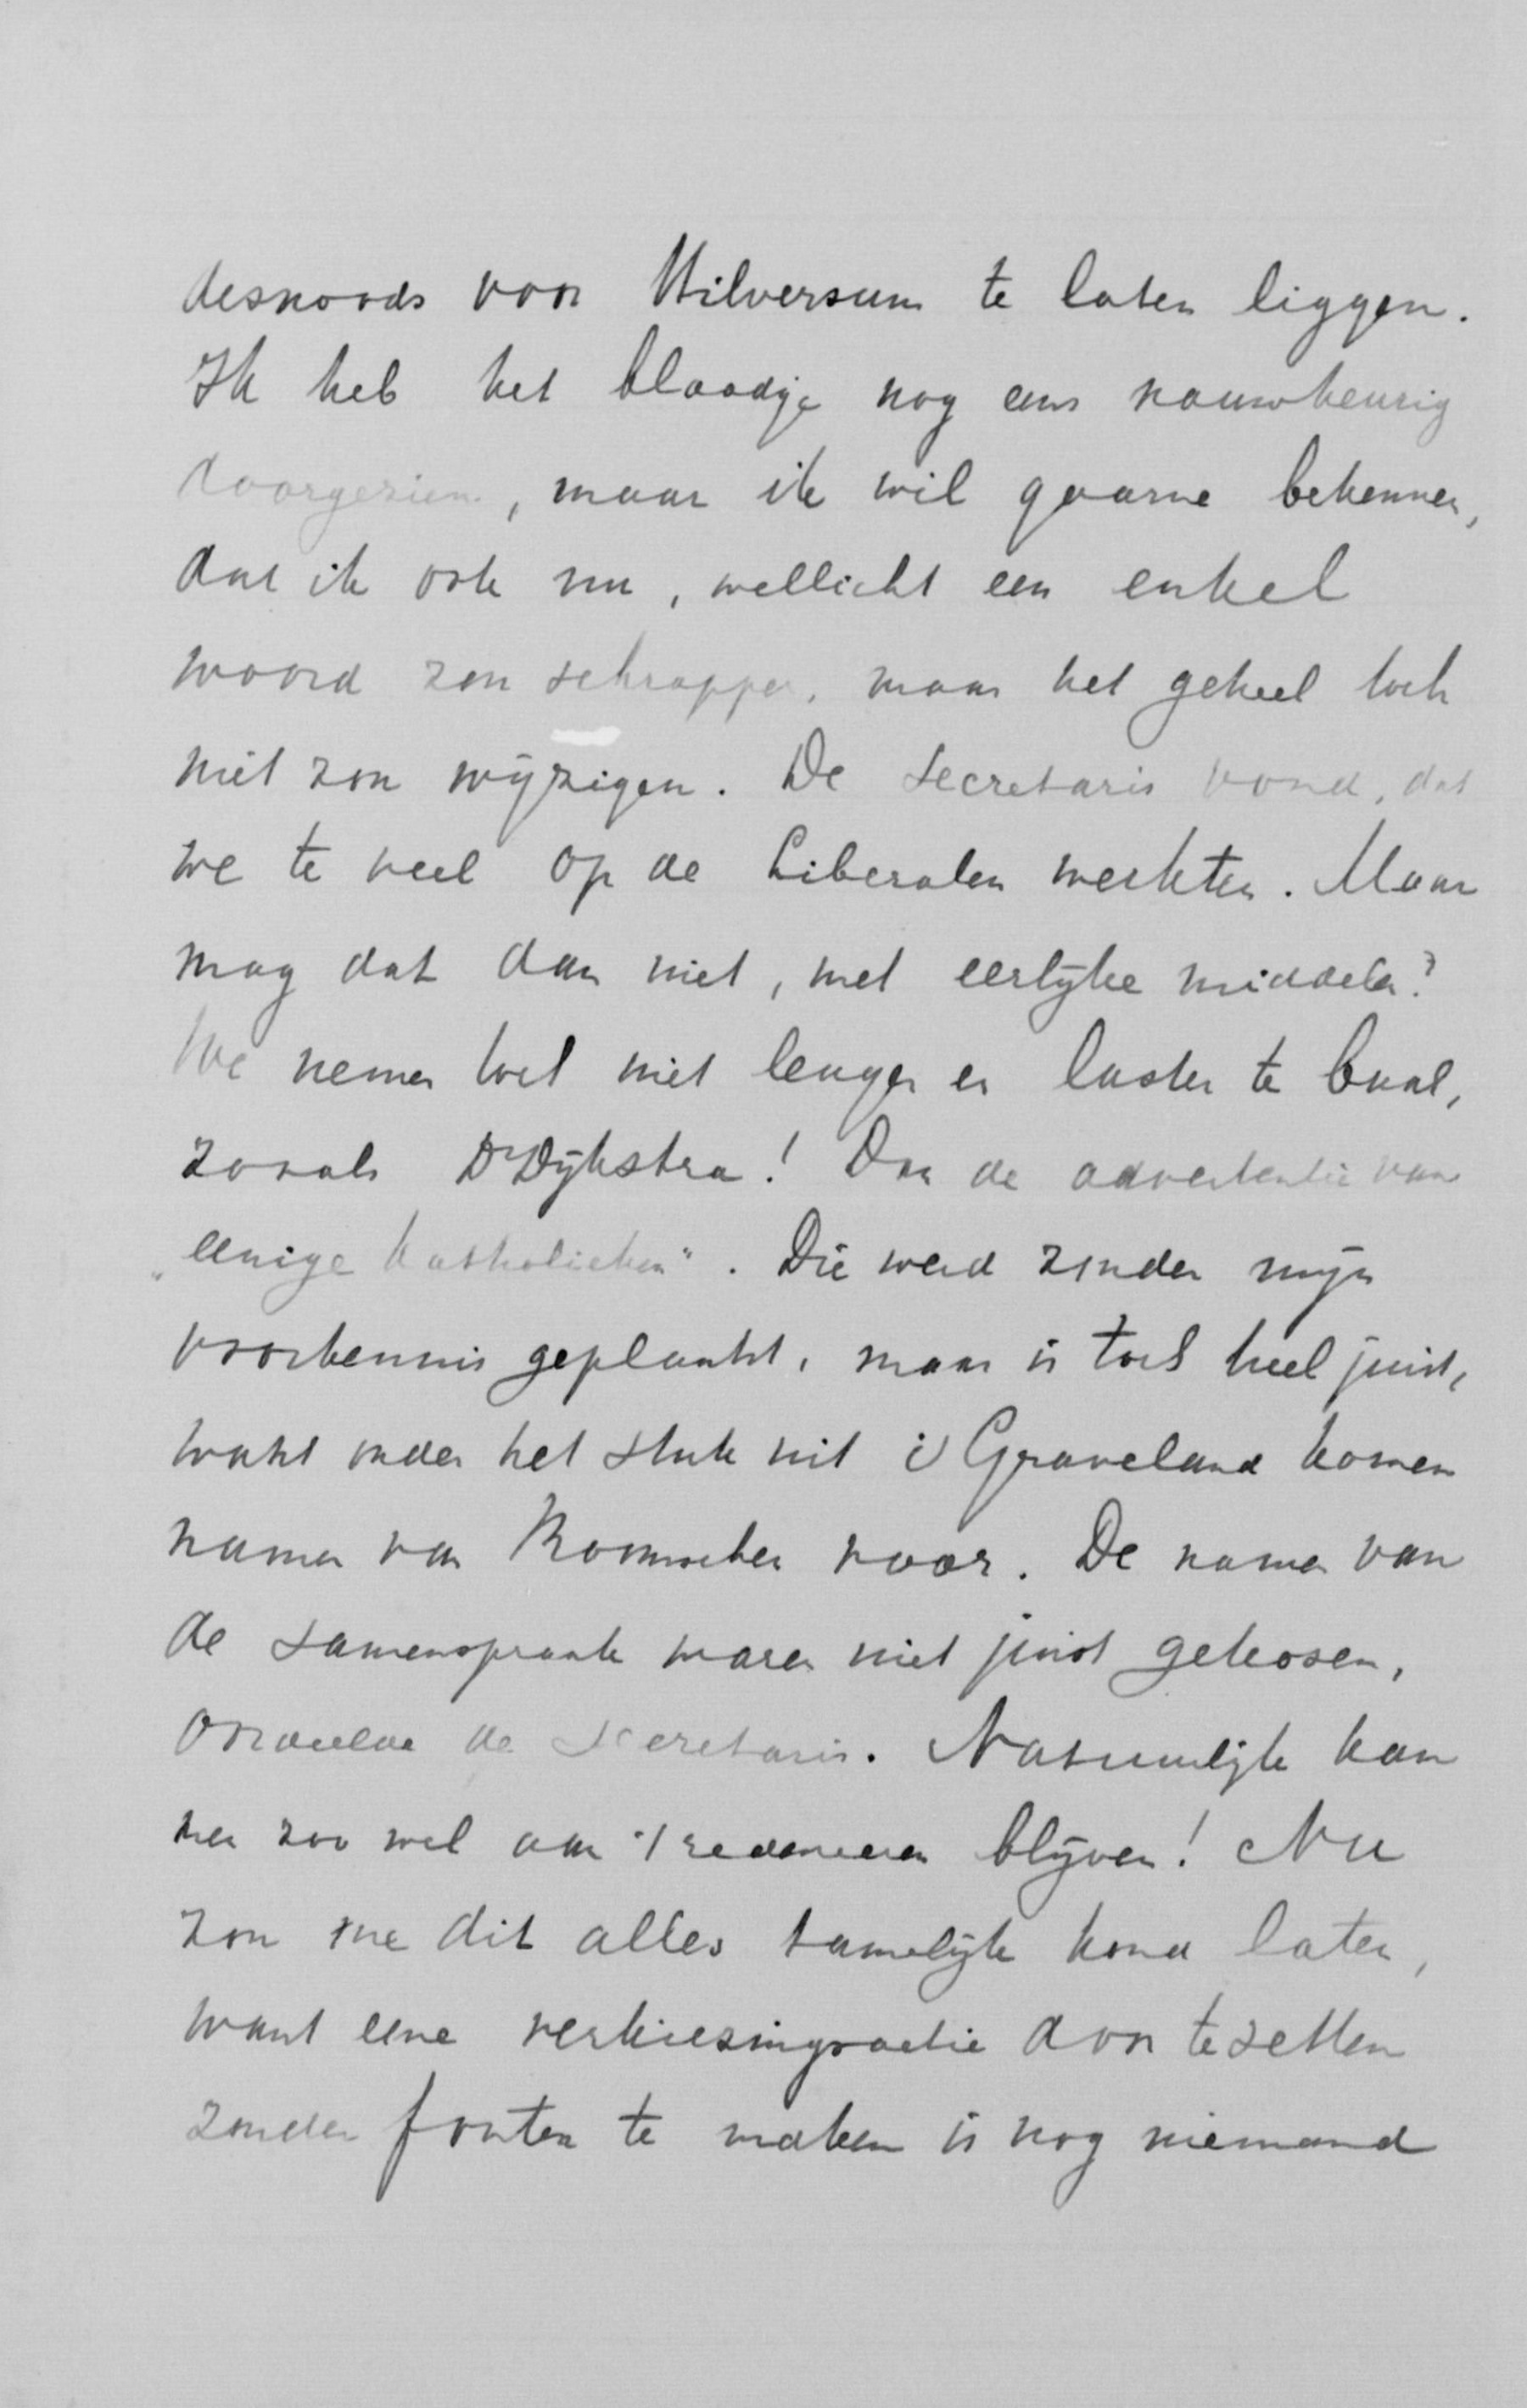 desnoods voor Hilversum te laten liggen.
Ik heb het blaadje nog eens nauwkeurig
doorgezien, maar ik wil gaarne bekennen,
dat ik ook nu, wellicht een enkel
woord zou schrappen, maar het geheel toch
niet zou wijzigen. De Secretaris vond, dat
we te veel op de Liberalen werkten. Maar
mag dat dan niet, met eerlijke middelen?
We nemen toch niet leugen en laster te baat,
zooals Dr Dijkstra! Dan de advertentie van
"eenige Katholieken". Die werd zonder mijn
voorkennis geplaatst, maar is toch heel juist,
want onder het stuk uit 's Graveland komen
namen van Roomschen voor. De namen van
de samenspraak waren niet juist gekozen,
oordeelde de Secretaris. Natuurlijk kan
men zoo wel aan 't redeneeren blijven! Nu
zou me dit alles tamelijk koud laten,
want eene verkiezingsactie door te zetten
zonder fouten te maken is nog niemand